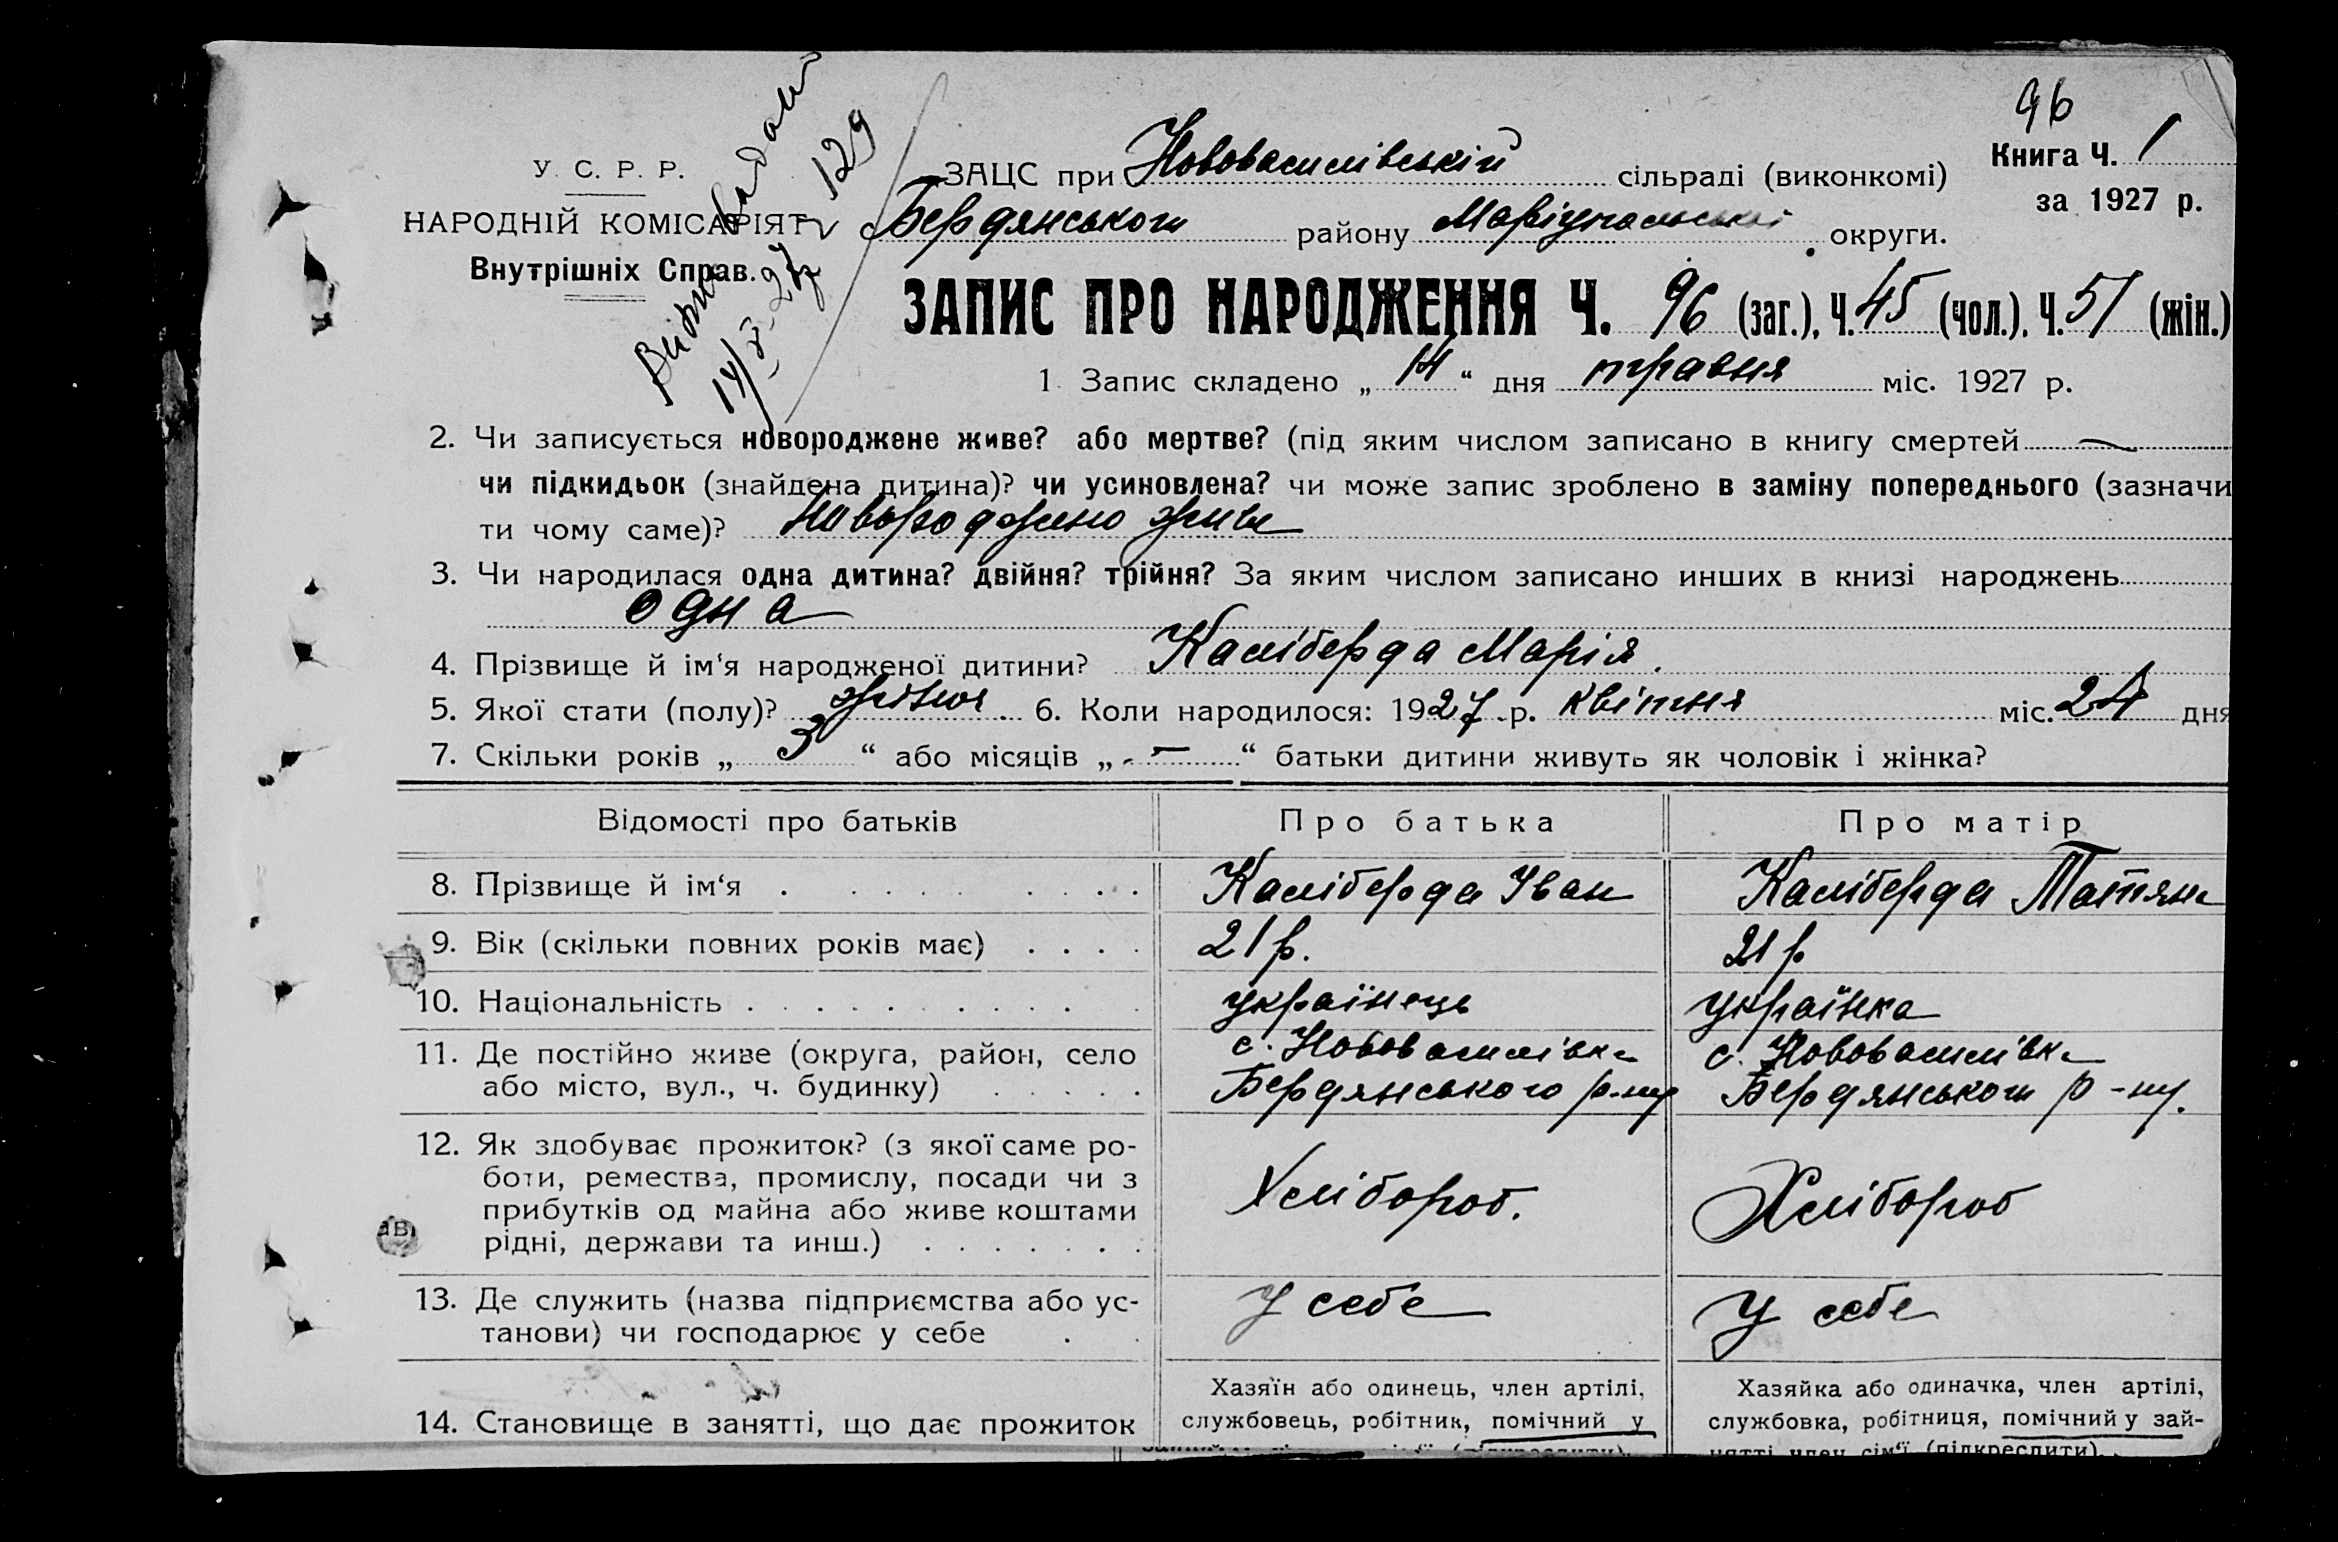 96
У. С. Р. Р.
НАРОДНІЙ КОМІСАРІЯТ
Внутрішніх Справ.
129
ЗАЦС при Нововасилівській сільраді (виконкомі)
Бердянського району Маріупольської округи.
Книга Ч. 1
за 1927 р.
ЗАПИС ПРО НАРОДЖЕННЯ Ч. 96 (заг.), Ч. 45 (чол.), Ч. 51 (жін.)
1. Запис складено „ 14 “ дня травня міс. 1927 р.
2. Чи записується новороджене живе? або мертве? (під яким числом записано в книгу смертей —
чи підкидьок (знайдена дитина)? чи усиновлена? чи може запис зроблено в заміну попереднього (зазначи
ти чому саме)? Новороджено живе
3. Чи народилася одна дитина? двійня? трійня? За яким числом записано инших в книзі народжень
одна
4. Прізвище й ім‘я народженої дитини? Каліберда Марія.
5. Якої стати (полу)? жіноч. 6. Коли народилося: 1927 р. квітня міс. 24 дня
7. Скільки років „ 3 “ або місяців „ – “ батьки дитини живуть як чоловік і жінка?
Відомості про батьків Про батька Про матір
8. Прізвище й ім‘я Каліберда Іван Каліберда Татяна
9. Вік (скільки повних років має) 21 р. 21 р
10. Національність українець українка
11. Де постійно живе (округа, район, село с. Нововасилівка с. Нововасилівка
або місто, вул., ч. будинку) Бердянського р-ну Бердянського р-ну.
12. Як здобуває прожиток? (з якої саме ро-
боти, ремества, промислу, посади чи з Хлібороб. Хлібороб
прибутків од майна або живе коштами
рідні, держави та инш.)
13. Де служить (назва підприємства або ус- У себе У себе
танови) чи господарює у себе
Хазяїн або одинець, член артілі, Хазяйка або одиначка, член артілі,
14. Становище в занятті, що дає прожиток службовець, робітник, помічний у службовка, робітниця, помічний у зай-
нятті член сім‘ї (підкреслити)